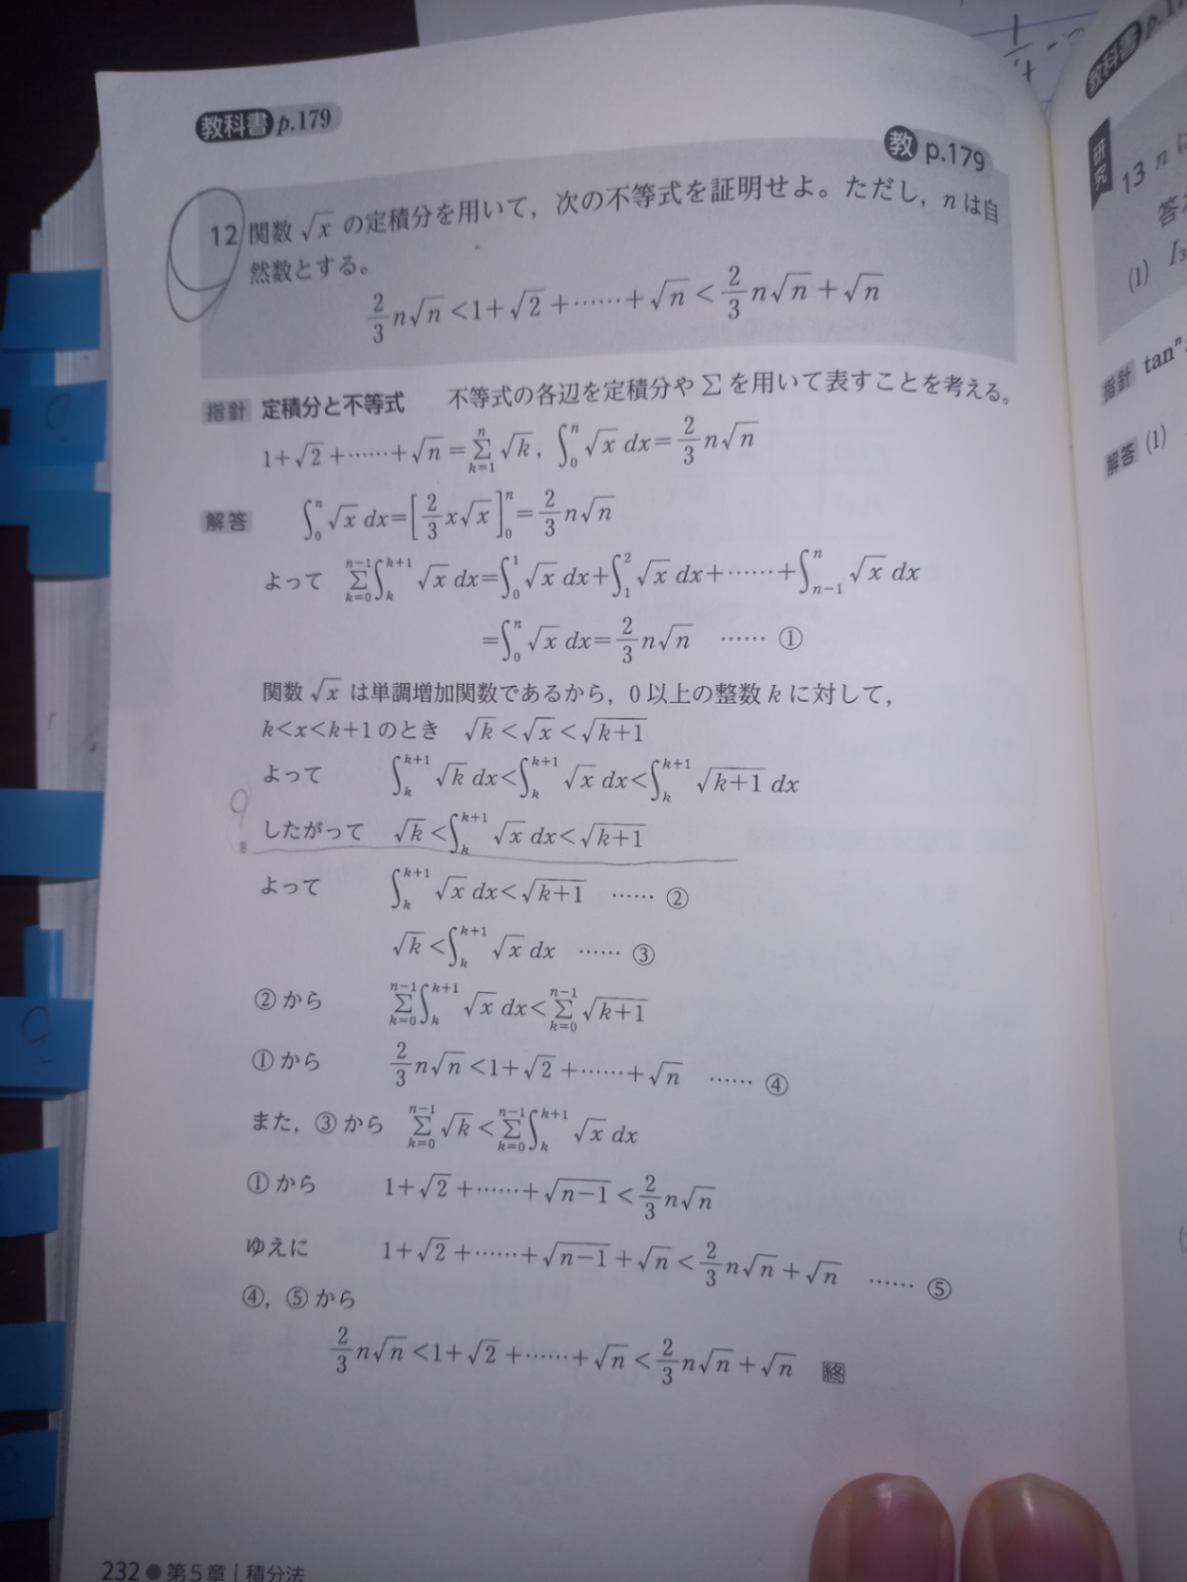 教科書 p.179
教 p.179
12 関数 √x の定積分を用いて，次の不等式を証明せよ。ただし，n は自
然数とする。
2/3 n√n < 1+√2+……+√n < 2/3 n√n+√n
指針 定積分と不等式 不等式の各辺を定積分や Σ を用いて表すことを考える。
1+√2+……+√n = Σ_{k=1}^{n} √k , ∫_0^n √x dx = 2/3 n√n
解答 ∫_0^n √x dx = [2/3 x√x]_0^n = 2/3 n√n
よって Σ_{k=0}^{n−1} ∫_k^{k+1} √x dx = ∫_0^1 √x dx + ∫_1^2 √x dx + …… + ∫_{n−1}^n √x dx
= ∫_0^n √x dx = 2/3 n√n …… ①
関数 √x は単調増加関数であるから，0 以上の整数 k に対して，
k<x<k+1 のとき √k < √x < √(k+1)
よって ∫_k^{k+1} √k dx < ∫_k^{k+1} √x dx < ∫_k^{k+1} √(k+1) dx
したがって √k < ∫_k^{k+1} √x dx < √(k+1)
よって ∫_k^{k+1} √x dx < √(k+1) …… ②
√k < ∫_k^{k+1} √x dx …… ③
②から Σ_{k=0}^{n−1} ∫_k^{k+1} √x dx < Σ_{k=0}^{n−1} √(k+1)
①から 2/3 n√n < 1+√2+……+√n …… ④
また，③から Σ_{k=0}^{n−1} √k < Σ_{k=0}^{n−1} ∫_k^{k+1} √x dx
①から 1+√2+……+√(n−1) < 2/3 n√n
ゆえに 1+√2+……+√(n−1)+√n < 2/3 n√n+√n …… ⑤
④，⑤から
2/3 n√n < 1+√2+……+√n < 2/3 n√n+√n 終
232 ● 第5章 | 積分法
教科書
研究
13 n
(1) I₃
指針 tanⁿ
解答 (1)